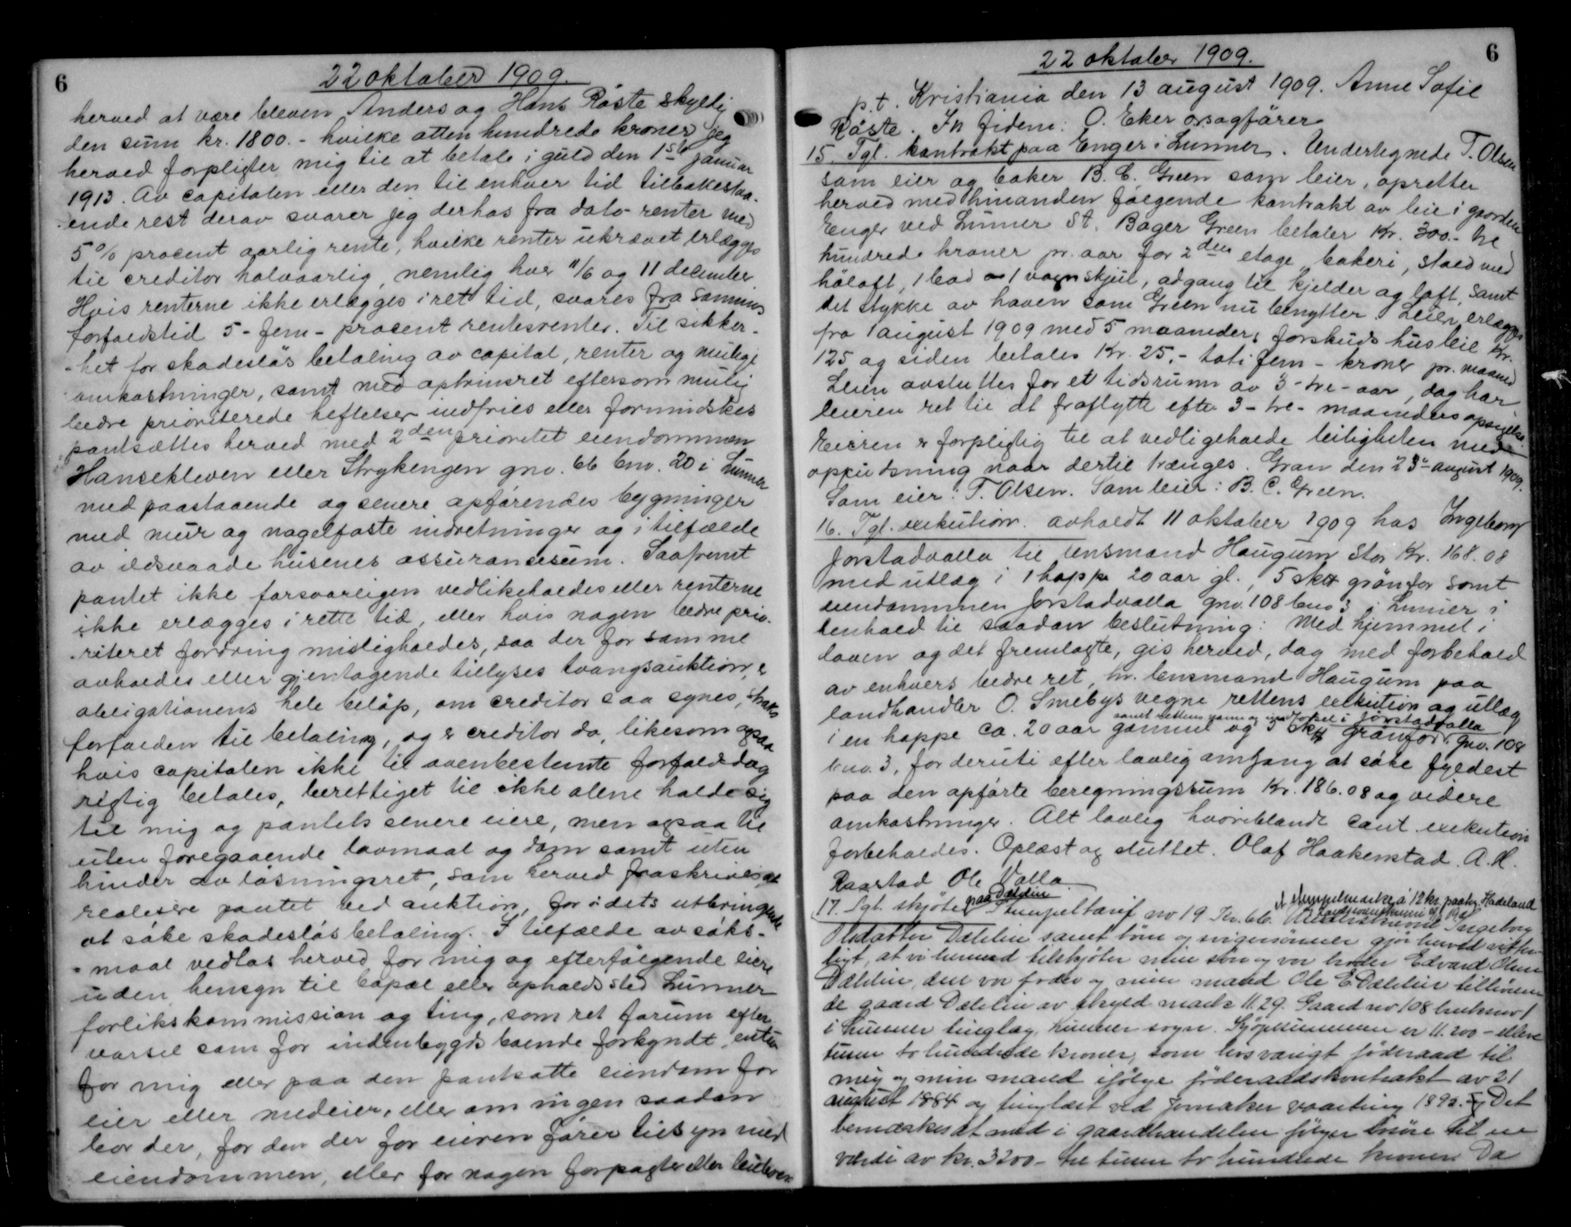 6
22 oktober 1909.
herved at være bleven Anders og Hans Råste skyldig
den sum kr. 1800.- hvilke atten hundrede kroner jeg
herved forpligter mig til at betale i guld den 1ste januar
1913. Av capitalen eller den til enhver tid tilbakestaa-
ende rest derav svarer jeg derhos fra dato renter med
5 % procent aarlig rente, hvilke renter ukrævet erlægges
til creditor halvaarlig, nemlig hver 11/6 og 11 december
Hvis renterne ikke erlægges i ret tid, svares fra sammes
forfaldstid 5 - fem - procent rentesrenter. Til sikker-
-het for skadesløs betaling av capital, renter og mulige
omkostninger, samt med optrinsret eftersom mulig
bedre prioriterede heftelser indfries eller formindskes
pantsættes herved med 2den prioritet eiendommen
Hansekleven eller Strykengen gno. 66 bno. 20 i Lunner
med paastaaende og senere opførendes bygninger
med mur og nagelfaste indretninger og i tilfælde
av ildsvaade husenes assurancesum. Saafremt
pantet ikke forsvarligen vedlikeholdes eller renterne
ikke erlægges i rette tid, eller hvis nogen bedre prio-
-riteret fordring misligholdes, saa der for samme
avholdes eller gjentagende tillyses tvangsauktion, er
obligationens hele beløp, om creditor saa synes, straks
forfalden til betaling, og er creditor da, likesom ogsaa
hvis capitalen ikke til ovenbestemte forfaldsdag
rigtig betales, berettiget til ikke alene holde sig
til mig og pantets senere eiere, men ogsaa til
uten foregaaende lovmaal og dom samt uten
hinder av løsningsret, som herved fraskrives, at
realisere pantet ved auktion, for i dets utbringende
at søke skadesløs betaling. I tilfælde av søks-
-maal vedtas herved for mig og efterfølgende eiere
uden hensyn til bopæl eller opholdssted Lunner
forlikskommission og ting, som ret forum efter
varsel som for indenbygds boende forkyndt, enten
for mig eller paa den pantsatte eiendom for
eier eller medeier, eller om ingen saadan
bor der, for den der for eieren fører tilsyn med
eiendommen, eller for nogen forpagter eller leilending
6
22 oktober 1909.
p.t. Kristiania den 13 august 1909. Anne Sofie
Råste. In fidem: O. Eker orsagfører
15. Tgl. kontrakt paa Enger i Lunner. Undertegnede T. Olsen
som eier og baker B. C. Green som leier, opretter
herved med hinanden følgende kontrakt av leie i gaarden
Enger ved Lunner St. Bager Green betaler Kr. 300.- tre
hundrede kroner pr. aar for 2den etage, bakeri, stald med
høloft, 1 bod o 1 vognskjul, adgang til kjelder og loft, samt
det stykke av haven som Green nu benytter. Leien erlægges
fra 1 august 1909 med 5 maaneders forskuds husleie Kr.
125 og siden betales Kr. 25,- toti fem - kroner pr. maaned
Leien avsluttes for et tidsrum av 3 - tre - aar, dog har
leieren ret til at fraflytte efter 3 - tre - maaneders opsigelse.
Eieren er forpligtig til at vedligeholde leiligheten med
oppudsning naar dertil trænges. Gran den 23de august 1909.
Som eier: T. Olsen. Som leier: B. C. Green.
16. Tgl. exekution avholdt 11 oktober 1909 hos Ingeborg
Jorstadvalla til lensmand Haugum stor Kr. 168.08
med utlæg i 1 hoppe 20 aar gl., 5 skp grønfor samt
eiendommen Jorstadvalla gno. 108 bno 3 i Lunner i
henhold til saadan beslutning: Med hjemmel i
loven og det fremlagte, gis herved, dog med forbehold
av enhvers bedre ret, hr. lensmand Haugum paa
landhandler O. Smebys vegne rettens exekution og utlæg
i en hoppe ca. 20 aar gammel og 5 skp grønfor gno. 108
bno. 3, for deruti efter lovlig omgang at søke fyldest
paa den opførte beregningssum Kr. 186.08 og videre
omkostninger. Alt lovlig hvoriblandt cont. exekution
forbeholdes. Oplæst og sluttet. Olaf Haakenstad. A. H.
Raastad Ole Valla.
17. Tgl. skjøte paa Dælelin Stempeltarif no 19 Kr. 66. Ingeborg
Olsdatter Dælelin samt børn og svigersønner gjør herved vitter-
ligt, at vi herved tilskjøter min søn og vor broder Edvard Olsen
Dælelin, den vor fader og min mand Ole E. Dælelin tilhøren-
de gaard Dælelin av skyld mark 11.29. Gaard no 108 bruksno 1
i Lunner tinglag, Lunner sogn. Kjøpesummen er 11.200 - elleve
tusen to hundrede kroner, som livsvarigt føderaad til
mig og min mand ifølge føderaadskontrakt av 21
august 1884 og tinglæst ved Jevnaker vaarting 1890. Det
bemærkes at med i gaardhandelen følger løsøre til en
værdi av kr. 3200 - tre tusen to hundrede kroner. Da